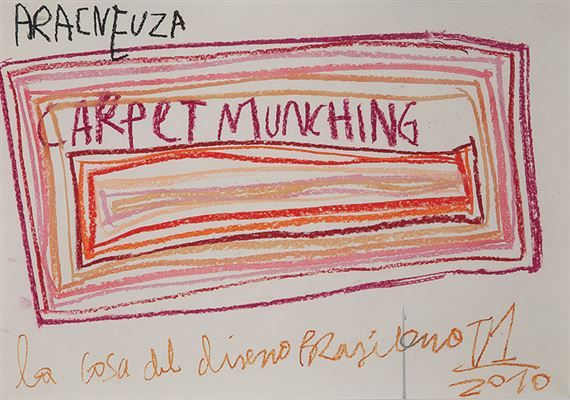 ARACNEUZA
CARPET MUNCHING
la cosa del diseno BRasileno
2010